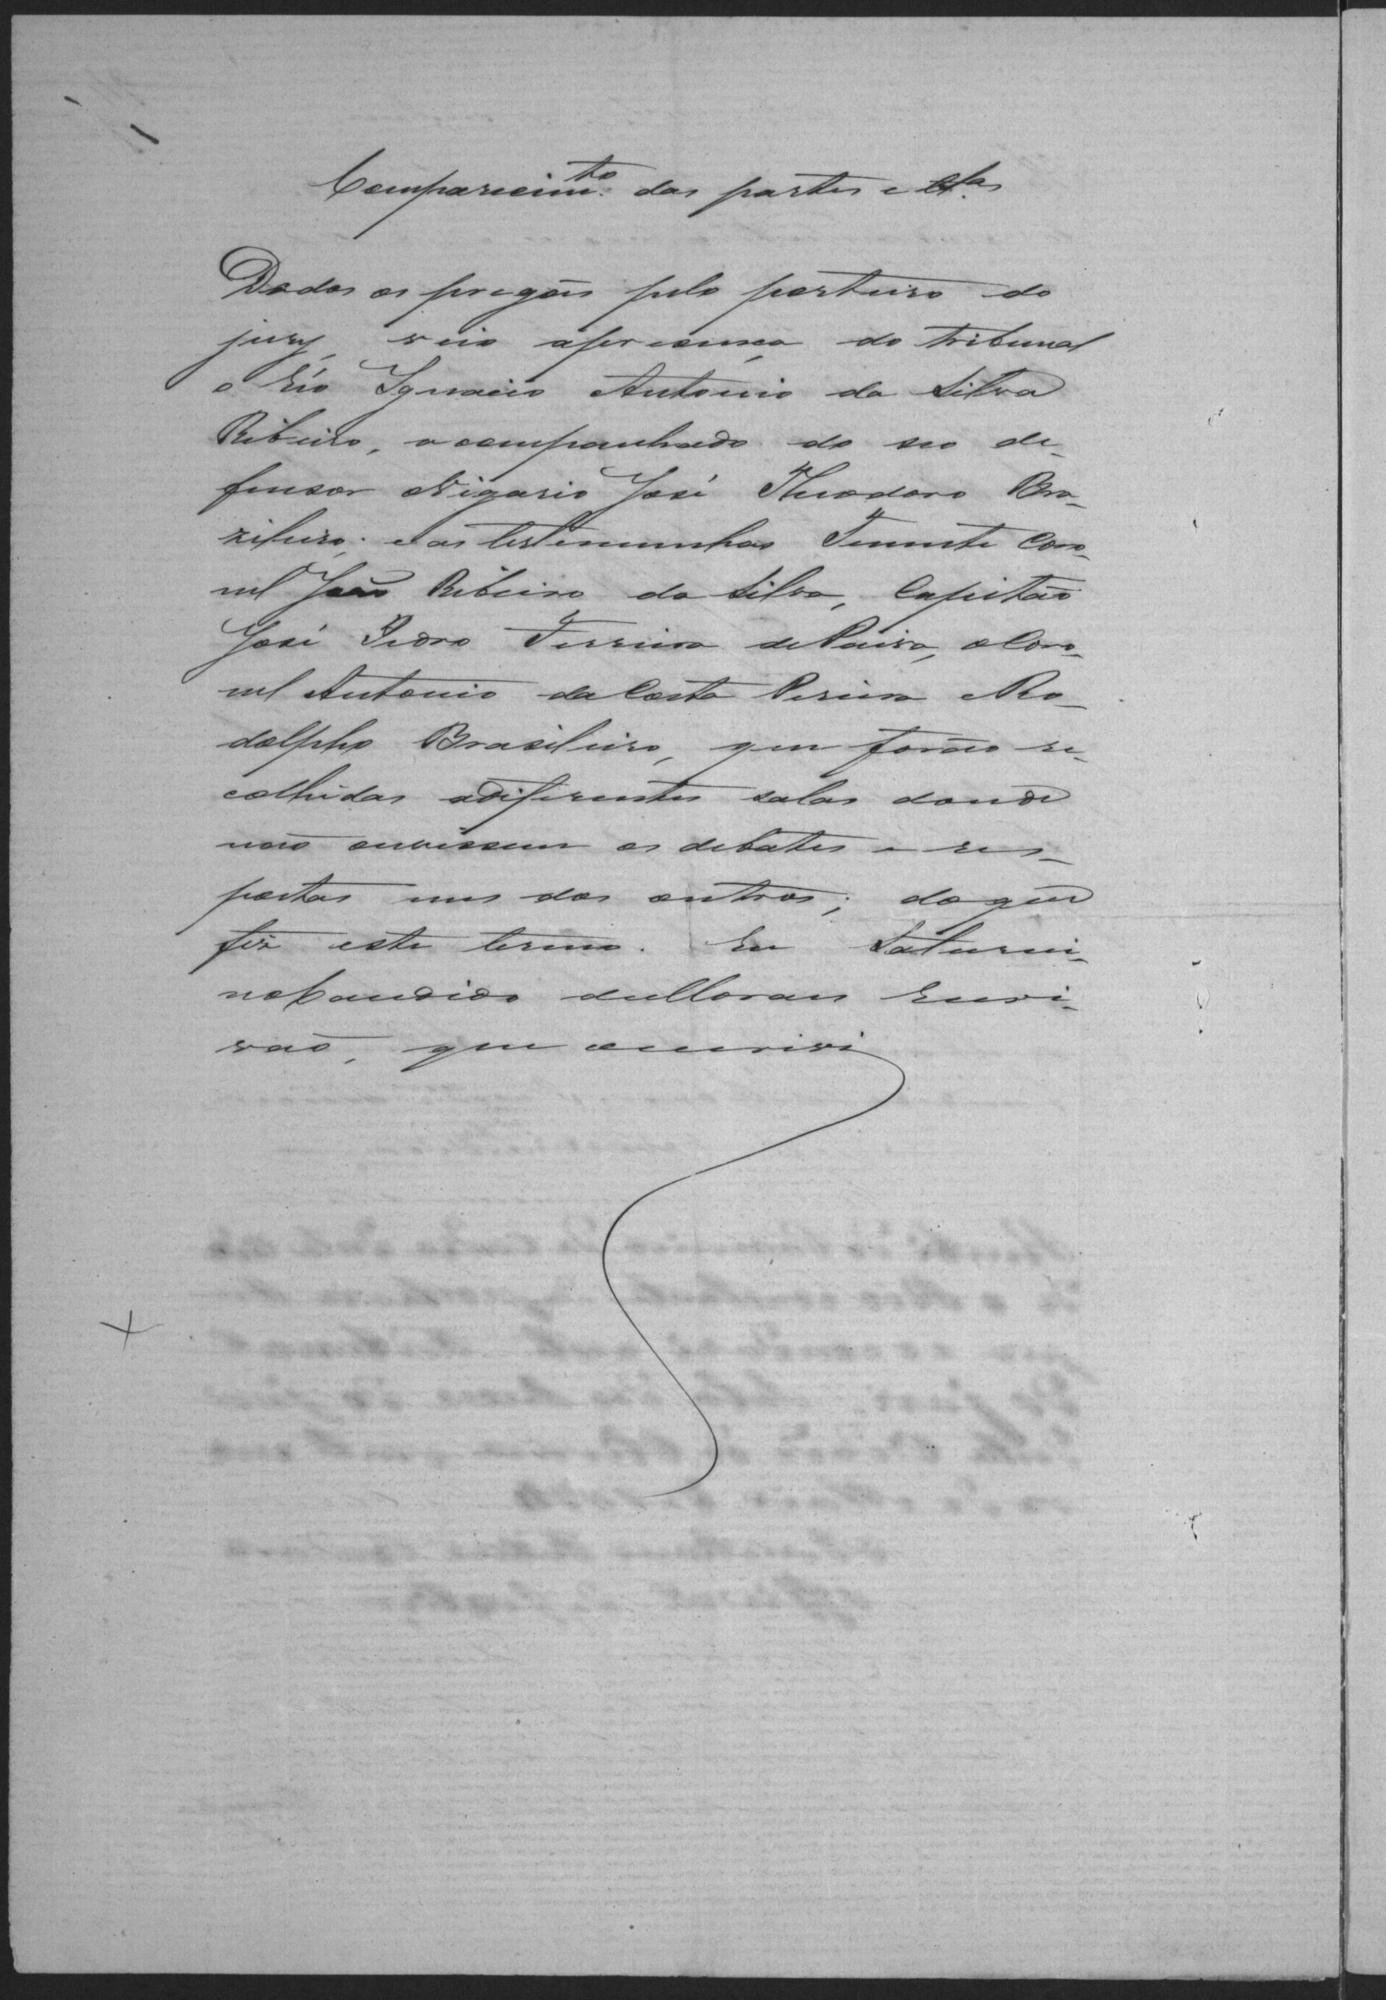 Comparecim.to das partes e t.as
Dados os pregões pelo porteiro do
jury, veio apresença do tribunal
o réo Ignacio Antonio da Silva
Ribeiro, acompanhado do seo de-
fensor oVigario José Theodoro Bra-
zileiro; e as testemunhas Tenente Coro-
nel João Ribeiro da Silva, Capitão
José Pedro Ferreira de Paiva, oCoro-
nel Antonio da Costa Pereira eRo-
dolpho Brasileiro, que forão re-
colhidas adiferentes salas donde
não ouvissem os debates e res-
postas uns dos outros; do que
fiz este termo. Eu Saturni-
noCandido deMoraes Escri-
vão, que oescrivi